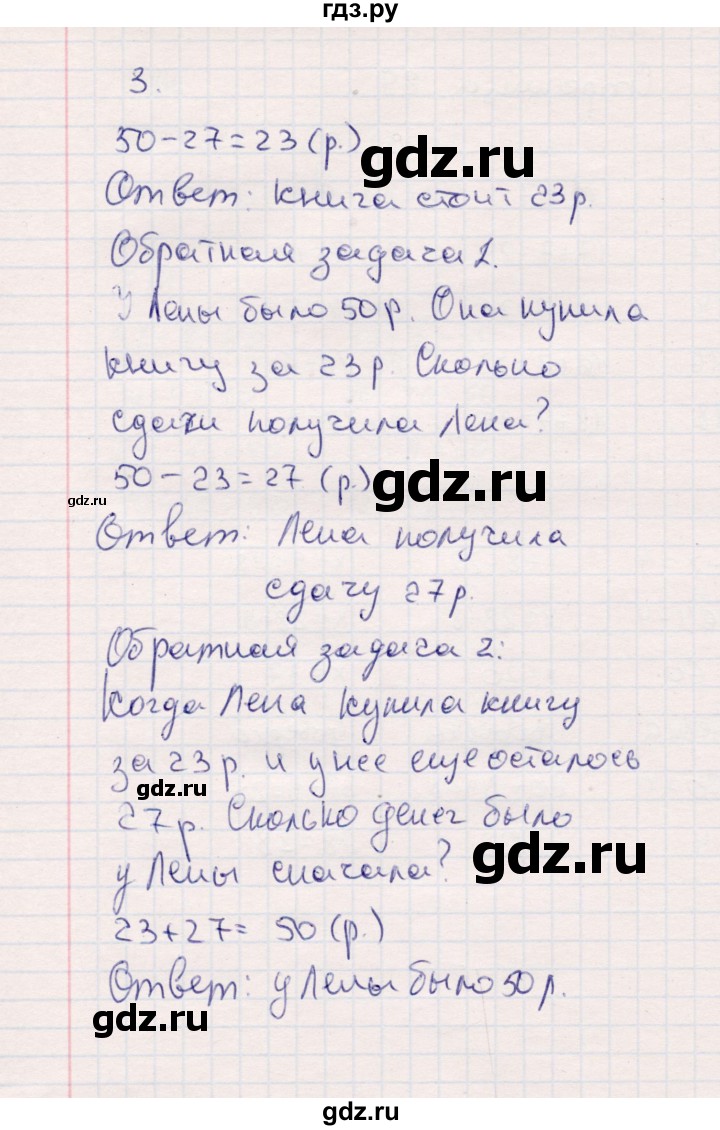 гдз.ру
3.
50-27=23 (р.)
gdz.ru
Ответ: книга стоит 23р.
Обратная задача 1.
У Лены было 50р. Она купила
книгу за 23р. Сколько
сдачи получила Лена?
50-23=27 (р.)
gdz.ru
gdz.ru
Ответ: Лена получила
сдачу 27р.
Обратная задача 2:
Когда Лена купила книгу
за 23р. и у нее еще осталось
gdz.ru
27р. Сколько денег было
gdz.ru
у Лены сначала?
23+27= 50 (р.)
Ответ: у Лены было 50р.
gdz.ru
gdz.ru